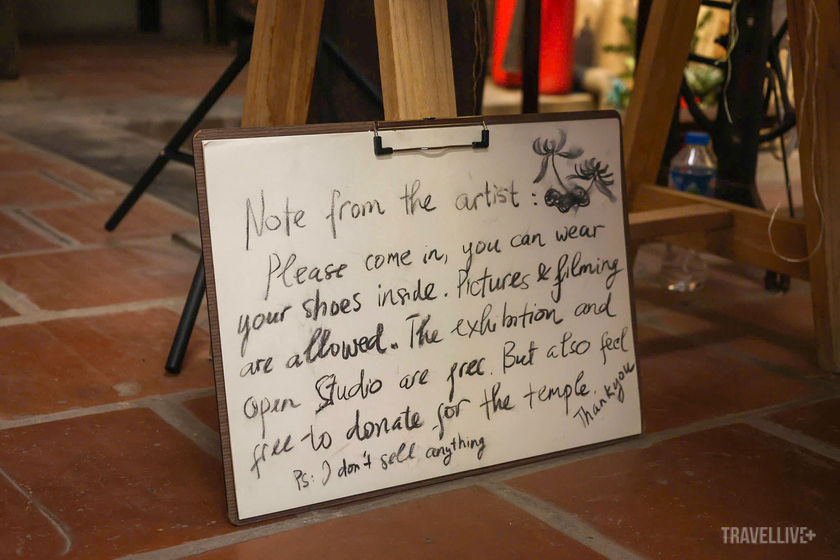 Note from the artist:
Please come in, you can wear
your shoes inside. Pictures & filming
are allowed. The exhibition and
open Studio are free. But also feel
free to donate for the temple.
Thank you
Ps: I don't sell anything
TRAVELLIVE+